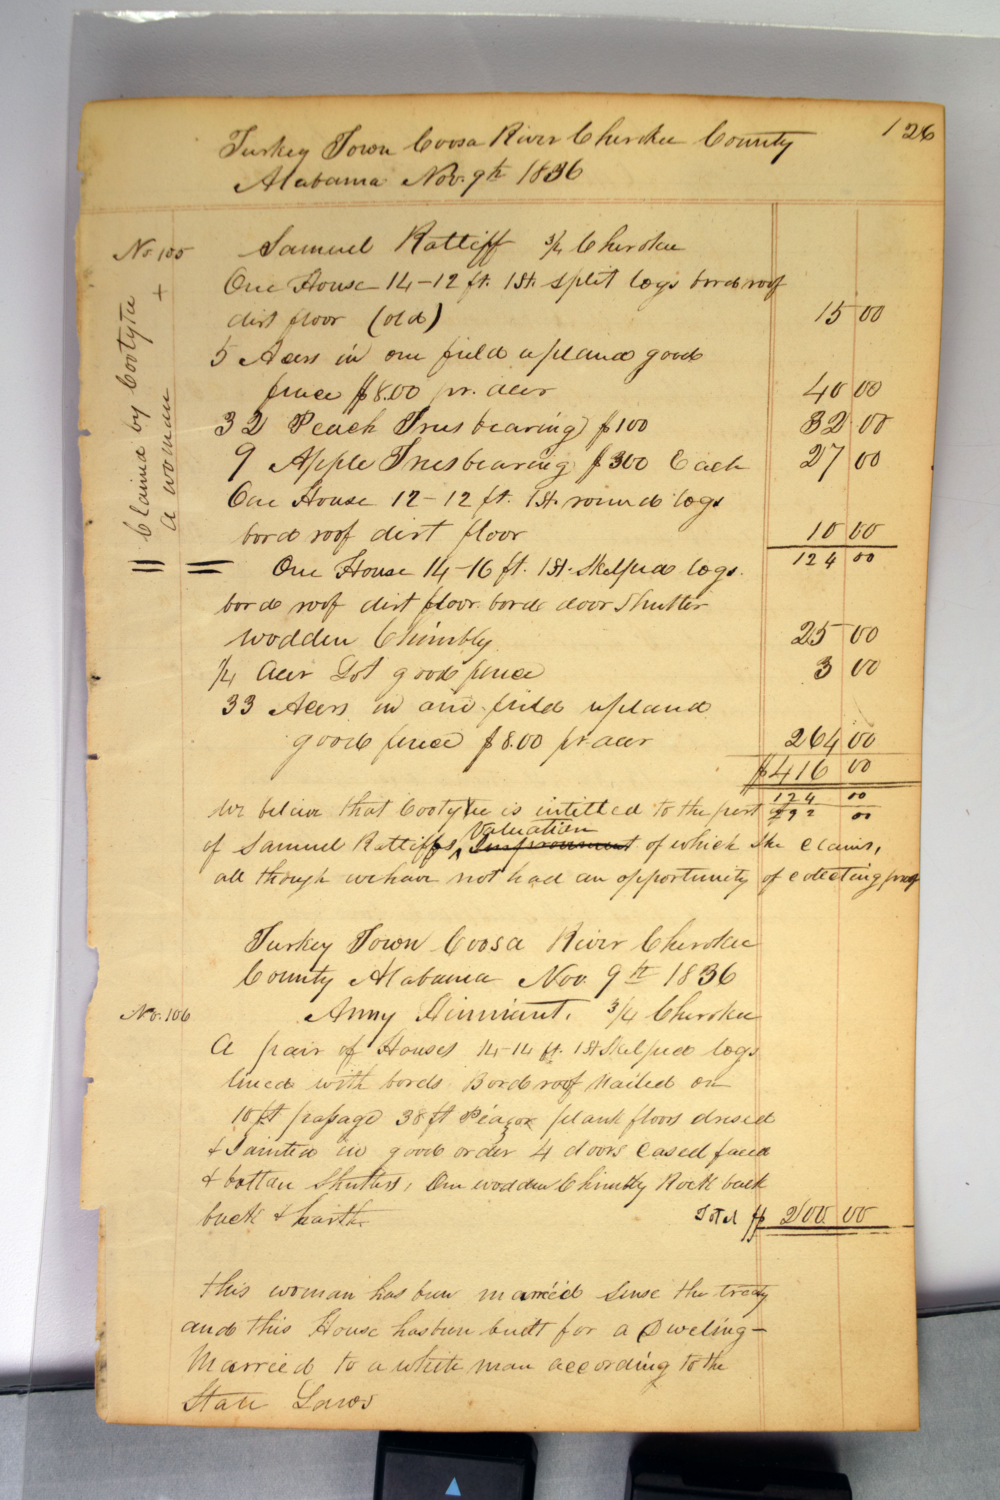 126
Turkey Town Coosa River Cherokee County
Alabama Nov. 9th 1836
No 105 Samuel Ratliff 3/4 Cherokee
One House 14-12 ft. 1 St. split logs bord roof
dirt floor (old) 15 00
5 Acers in one field upland good
fence $8.00 pr. acer 40 00
32 Peach Trees bearing $100 32 00
9 Apple Trees bearing $300 Each 27 00
One House 12-12 ft. 1 St. round logs
bord roof dirt floor 10 00
124 00
Claimd by Cootytee +
a woman
One House 14-16 ft. 1 St. Skelped logs.
bord roof dirt floor. bord door Shutter
wodden Chimbly 25 00
1/4 Acer Lot good fence 3 00
33 Acers in one field upland
good fence $8.00 pr acer 264 00
$416 00
124 00
292 00
We believe that Cootytee is intitled to the part
of Samuel Ratliffs Valuation Improvement of which She claims,
all though we have not had an opportunity of colecting proof
Turkey Town Coosa River Cherokee
County Alabama Nov. 9th 1836
No. 106 Anny 3/4 Cherokee
A pair of Houses 14-14 ft. 1 St Skelped logs
lined with bords Bord roof Nailed on
10 ft passage 38 ft Piazor plank floors dresed
& Jainted in good order 4 doors Cased faced
& battan Shutters, One wodden Chimbly Rock back
back & harth. Total $ 200 00
this woman has been married Sense the treaty
and this House has been built for a Dweling-
Married to a white man according to the
State Laws